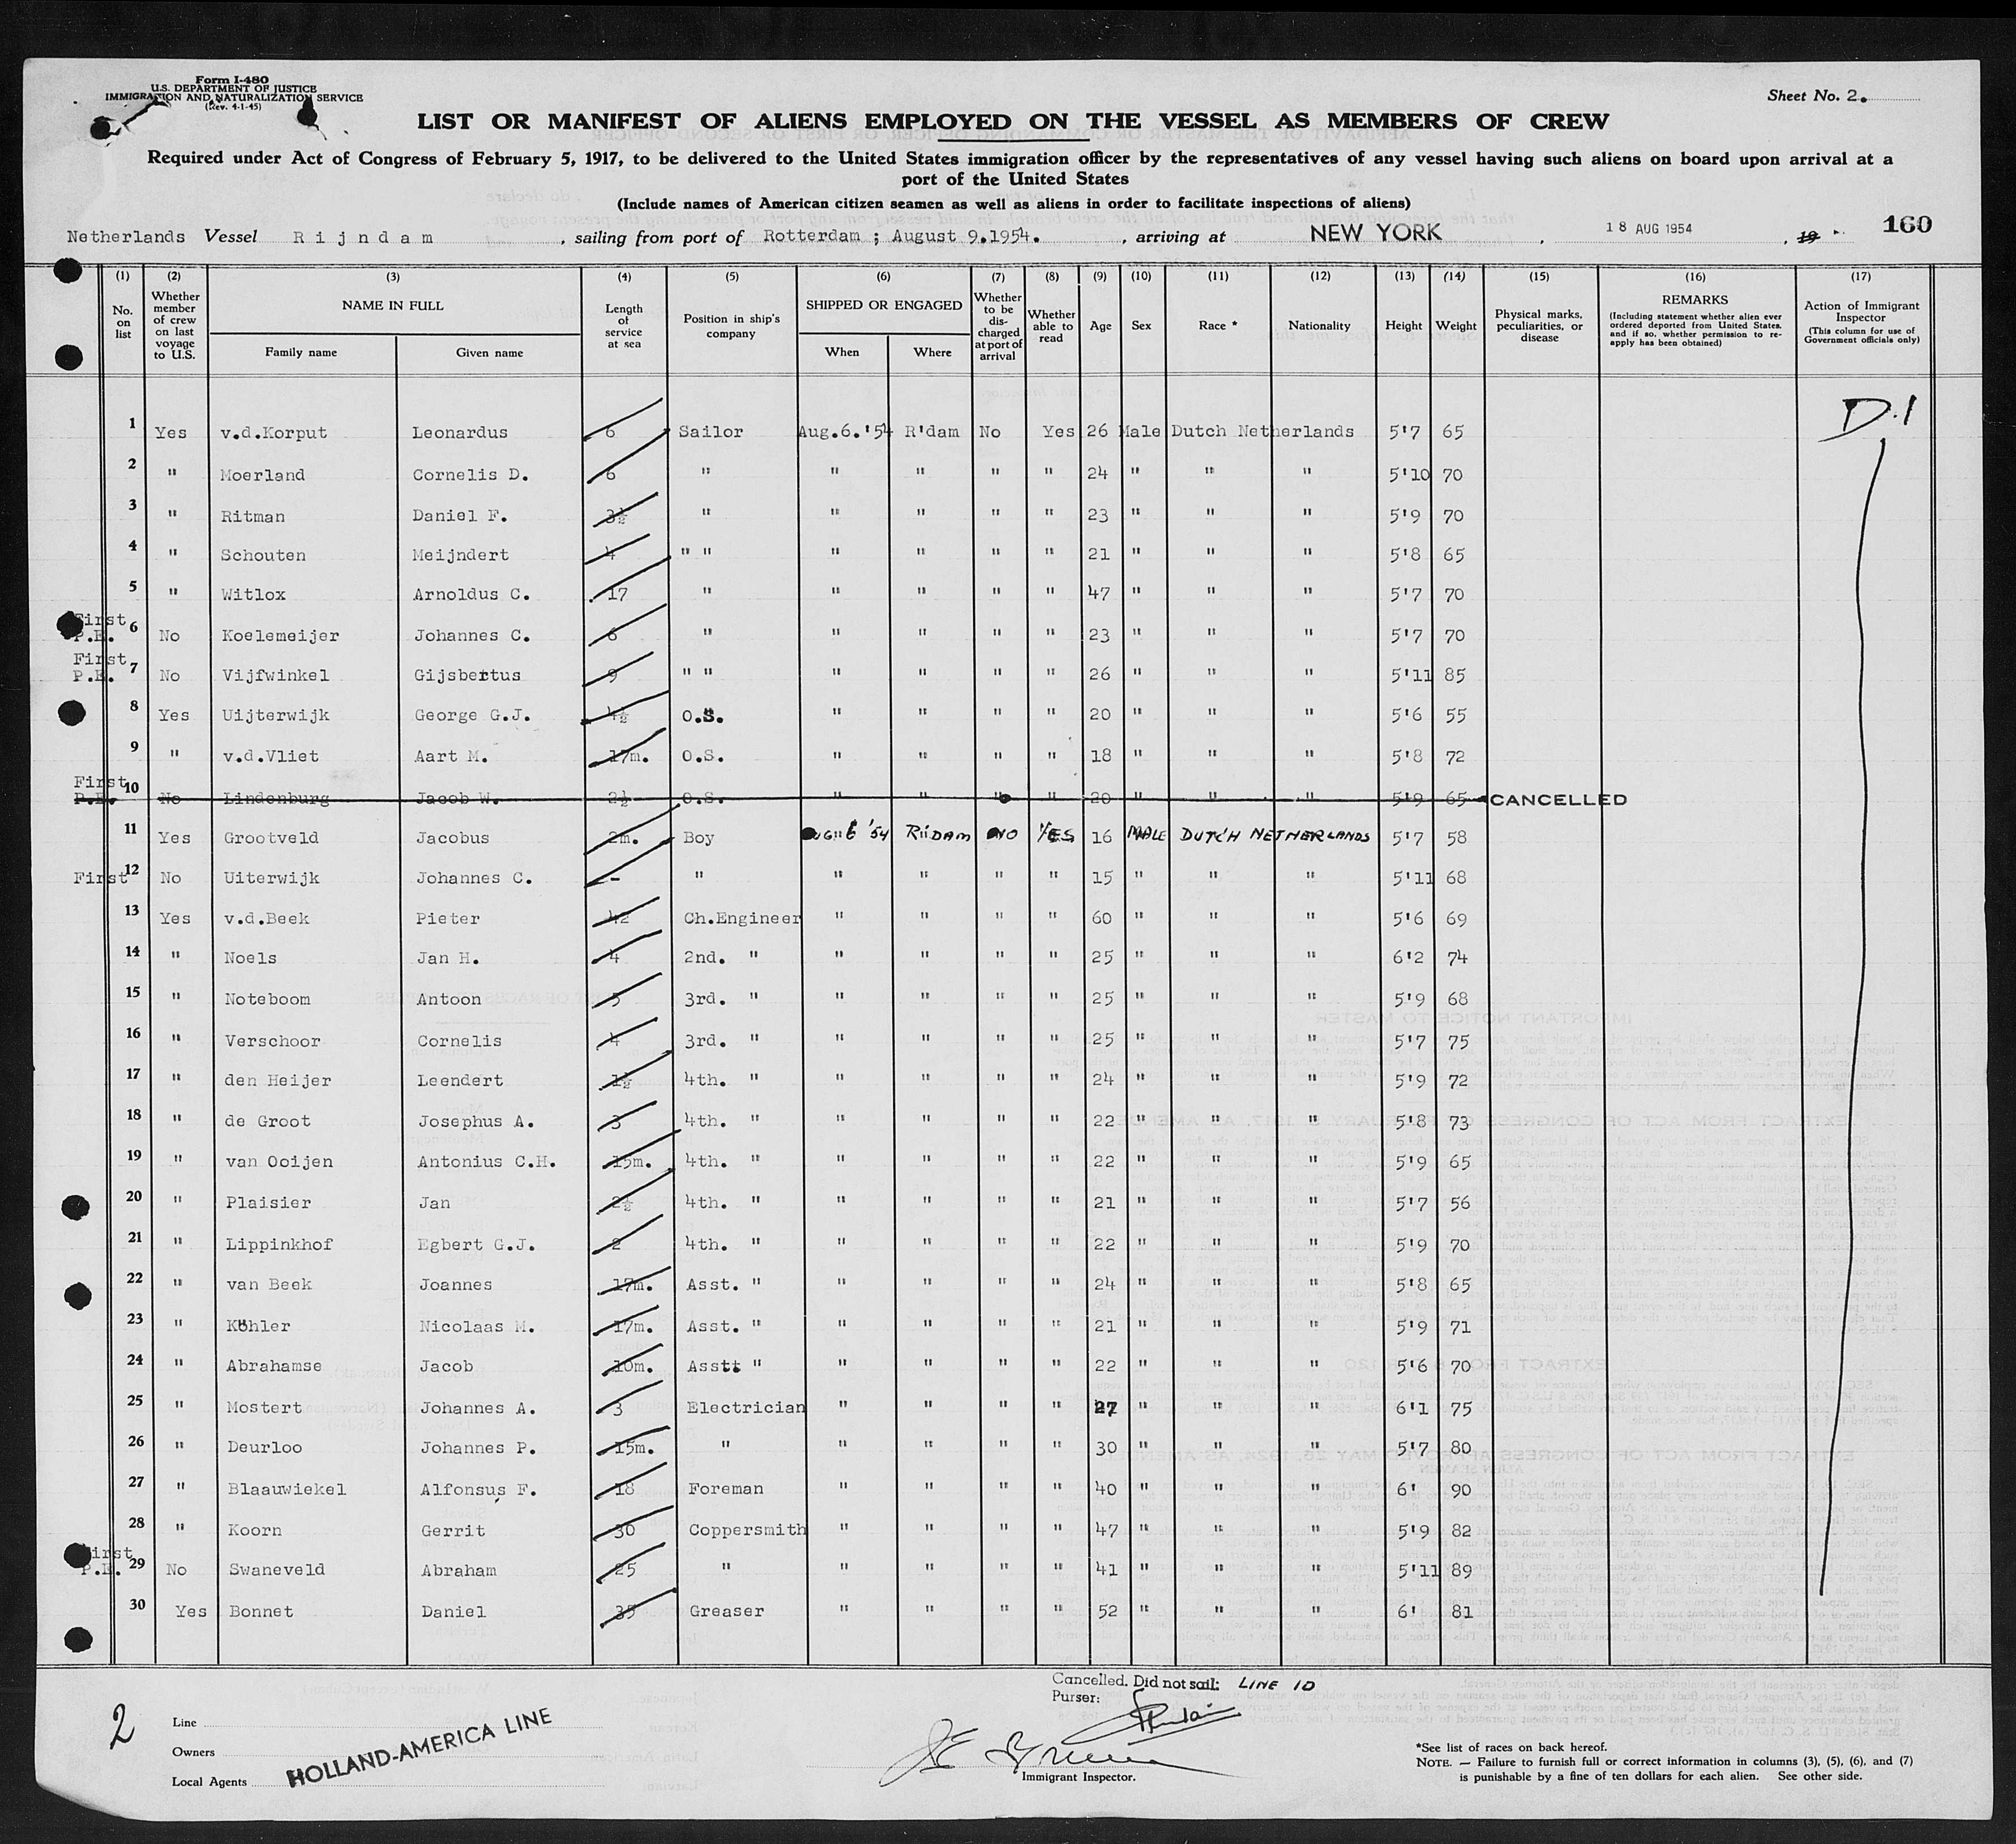 Form I-480
U.S. DEPARTMENT OF JUSTICE
IMMIGRATION AND NATURALIZATION SERVICE
(Rev. 4-1-45)
Sheet No. 2.
LIST OR MANIFEST OF ALIENS EMPLOYED ON THE VESSEL AS MEMBERS OF CREW
Required under Act of Congress of February 5, 1917, to be delivered to the United States immigration officer by the representatives of any vessel having such aliens on board upon arrival at a
port of the United States
(Include names of American citizen seamen as well as aliens in order to facilitate inspections of aliens)
Netherlands Vessel Rijndam, sailing from port of Rotterdam ; August 9.1954., arriving at NEW YORK, 18 AUG 1954, 19 160
(1) (2) (3) (4) (5) (6) (7) (8) (9) (10) (11) (12) (13) (14) (15) (16) (17)
No. on list
Whether member of crew on last voyage to U.S.
NAME IN FULL
Family name Given name
Length of service at sea
Position in ship's company
SHIPPED OR ENGAGED
When Where
Whether to be discharged at port of arrival
Whether able to read
Age
Sex
Race *
Nationality
Height
Weight
Physical marks, peculiarities, or disease
REMARKS
(Including statement whether alien ever ordered deported from United States, and if so, whether permission to re-apply has been obtained)
Action of Immigrant Inspector
(This column for use of Government officials only)
D.1
1 Yes v.d.Korput Leonardus 6 Sailor Aug.6.'54 R'dam No Yes 26 Male Dutch Netherlands 5'7 65
2 " Moerland Cornelis D. 6 " " " " " 24 " " " 5'10 70
3 " Ritman Daniel F. 3½ " " " " " 23 " " " 5'9 70
4 " Schouten Meijndert 4 " " " " " " 21 " " " 5'8 65
5 " Witlox Arnoldus C. 17 " " " " " 47 " " " 5'7 70
First P.E. 6 No Koelemeijer Johannes C. 6 " " " " " 23 " " " 5'7 70
First P.E. 7 No Vijfwinkel Gijsbertus 9 " " " " " " 26 " " " 5'11 85
8 Yes Uijterwijk George G.J. 4½ O.S. " " " " 20 " " " 5'6 55
9 " v.d.Vliet Aart M. 17m. O.S. " " " " 18 " " " 5'8 72
First P.E. 10 No Lindenburg Jacob W. 2½ O.S. " " " " 20 " " " 5'9 65 CANCELLED
11 Yes Grootveld Jacobus 2m. Boy AUG 6 '54 R'DAM NO YES 16 MALE DUTCH NETHERLANDS 5'7 58
First 12 No Uiterwijk Johannes C. - " " " " " 15 " " " 5'11 68
13 Yes v.d.Beek Pieter 42 Ch.Engineer " " " " 60 " " " 5'6 69
14 " Noels Jan H. 4 2nd. " " " " " 25 " " " 6'2 74
15 " Noteboom Antoon 5 3rd. " " " " " 25 " " " 5'9 68
16 " Verschoor Cornelis 4 3rd. " " " " " 25 " " " 5'7 75
17 " den Heijer Leendert 1½ 4th. " " " " " 24 " " " 5'9 72
18 " de Groot Josephus A. 3 4th. " " " " " 22 " " " 5'8 73
19 " van Ooijen Antonius C.H. 15m. 4th. " " " " " 22 " " " 5'9 65
20 " Plaisier Jan 2½ 4th. " " " " " 21 " " " 5'7 56
21 " Lippinkhof Egbert G.J. 2 4th. " " " " " 22 " " " 5'9 70
22 " van Beek Joannes 17m. Asst. " " " " " 24 " " " 5'8 65
23 " Köhler Nicolaas M. 17m. Asst. " " " " " 21 " " " 5'9 71
24 " Abrahamse Jacob 10m. Asstt " " " " " 22 " " " 5'6 70
25 " Mostert Johannes A. 3 Electrician " " " " 27 " " " 6'1 75
26 " Deurloo Johannes P. 15m. " " " " " 30 " " " 5'7 80
27 " Blaauwiekel Alfonsus F. 18 Foreman " " " " 40 " " " 6' 90
28 " Koorn Gerrit 30 Coppersmith " " " " 47 " " " 5'9 82
First P.E. 29 No Swaneveld Abraham 25 " " " " " 41 " " " 5'11 89
30 Yes Bonnet Daniel 35 Greaser " " " " 52 " " " 6' 81
Cancelled. Did not sail: LINE 10
Purser:
2
Line
Owners
Local Agents
HOLLAND-AMERICA LINE
Immigrant Inspector.
*See list of races on back hereof.
NOTE. — Failure to furnish full or correct information in columns (3), (5), (6), and (7)
is punishable by a fine of ten dollars for each alien. See other side.